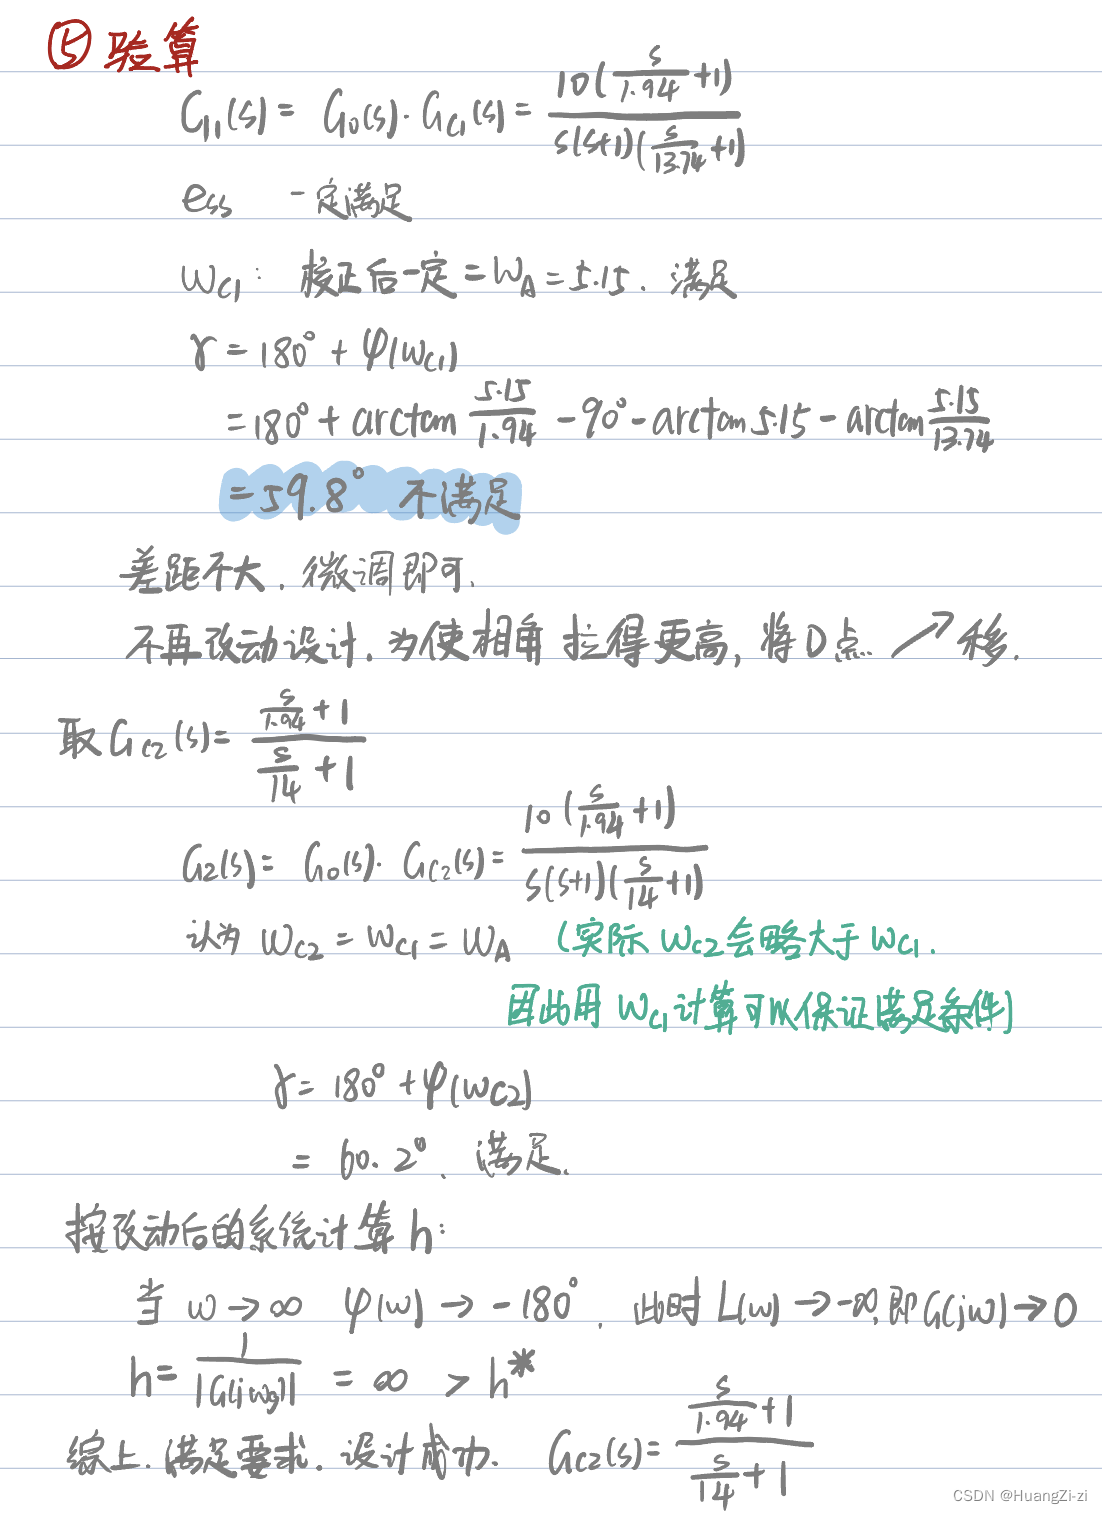 ⑤ 验算
G₁(s) = G₀(s)·G_{C1}(s) = \frac{10(\frac{s}{1.94}+1)}{s(s+1)(\frac{s}{13.74}+1)}
e_{ss} 一定满足
W_{C1}: 校正后一定 = W_A = 5.15. 满足
γ = 180° + φ(W_{C1})
= 180° + arctan \frac{5.15}{1.94} - 90° - arctan 5.15 - arctan \frac{5.15}{13.74}
= 59.8° 不满足
差距不大. 微调即可.
不再改动设计. 为使相角 拉得更高, 将D点 ↗ 移.
取 G_{C2}(s) = \frac{\frac{s}{1.94}+1}{\frac{s}{14}+1}
G₂(s) = G₀(s)·G_{C2}(s) = \frac{10(\frac{s}{1.94}+1)}{s(s+1)(\frac{s}{14}+1)}
认为 W_{C2} = W_{C1} = W_A (实际 W_{C2} 会略大于 W_{C1}.
因此用 W_{C1} 计算可以保证满足条件)
γ = 180° + φ(W_{C2})
= 60.2°. 满足.
按改动后的系统计算 h:
当 ω → ∞ φ(ω) → -180°. 此时 L(ω) → -∞, 即 G(jω) → 0
h = \frac{1}{|G(jω_g)|} = ∞ > h*
综上. 满足要求. 设计成功. G_{C2}(s) = \frac{\frac{s}{1.94}+1}{\frac{s}{14}+1}
CSDN @HuangZi-zi